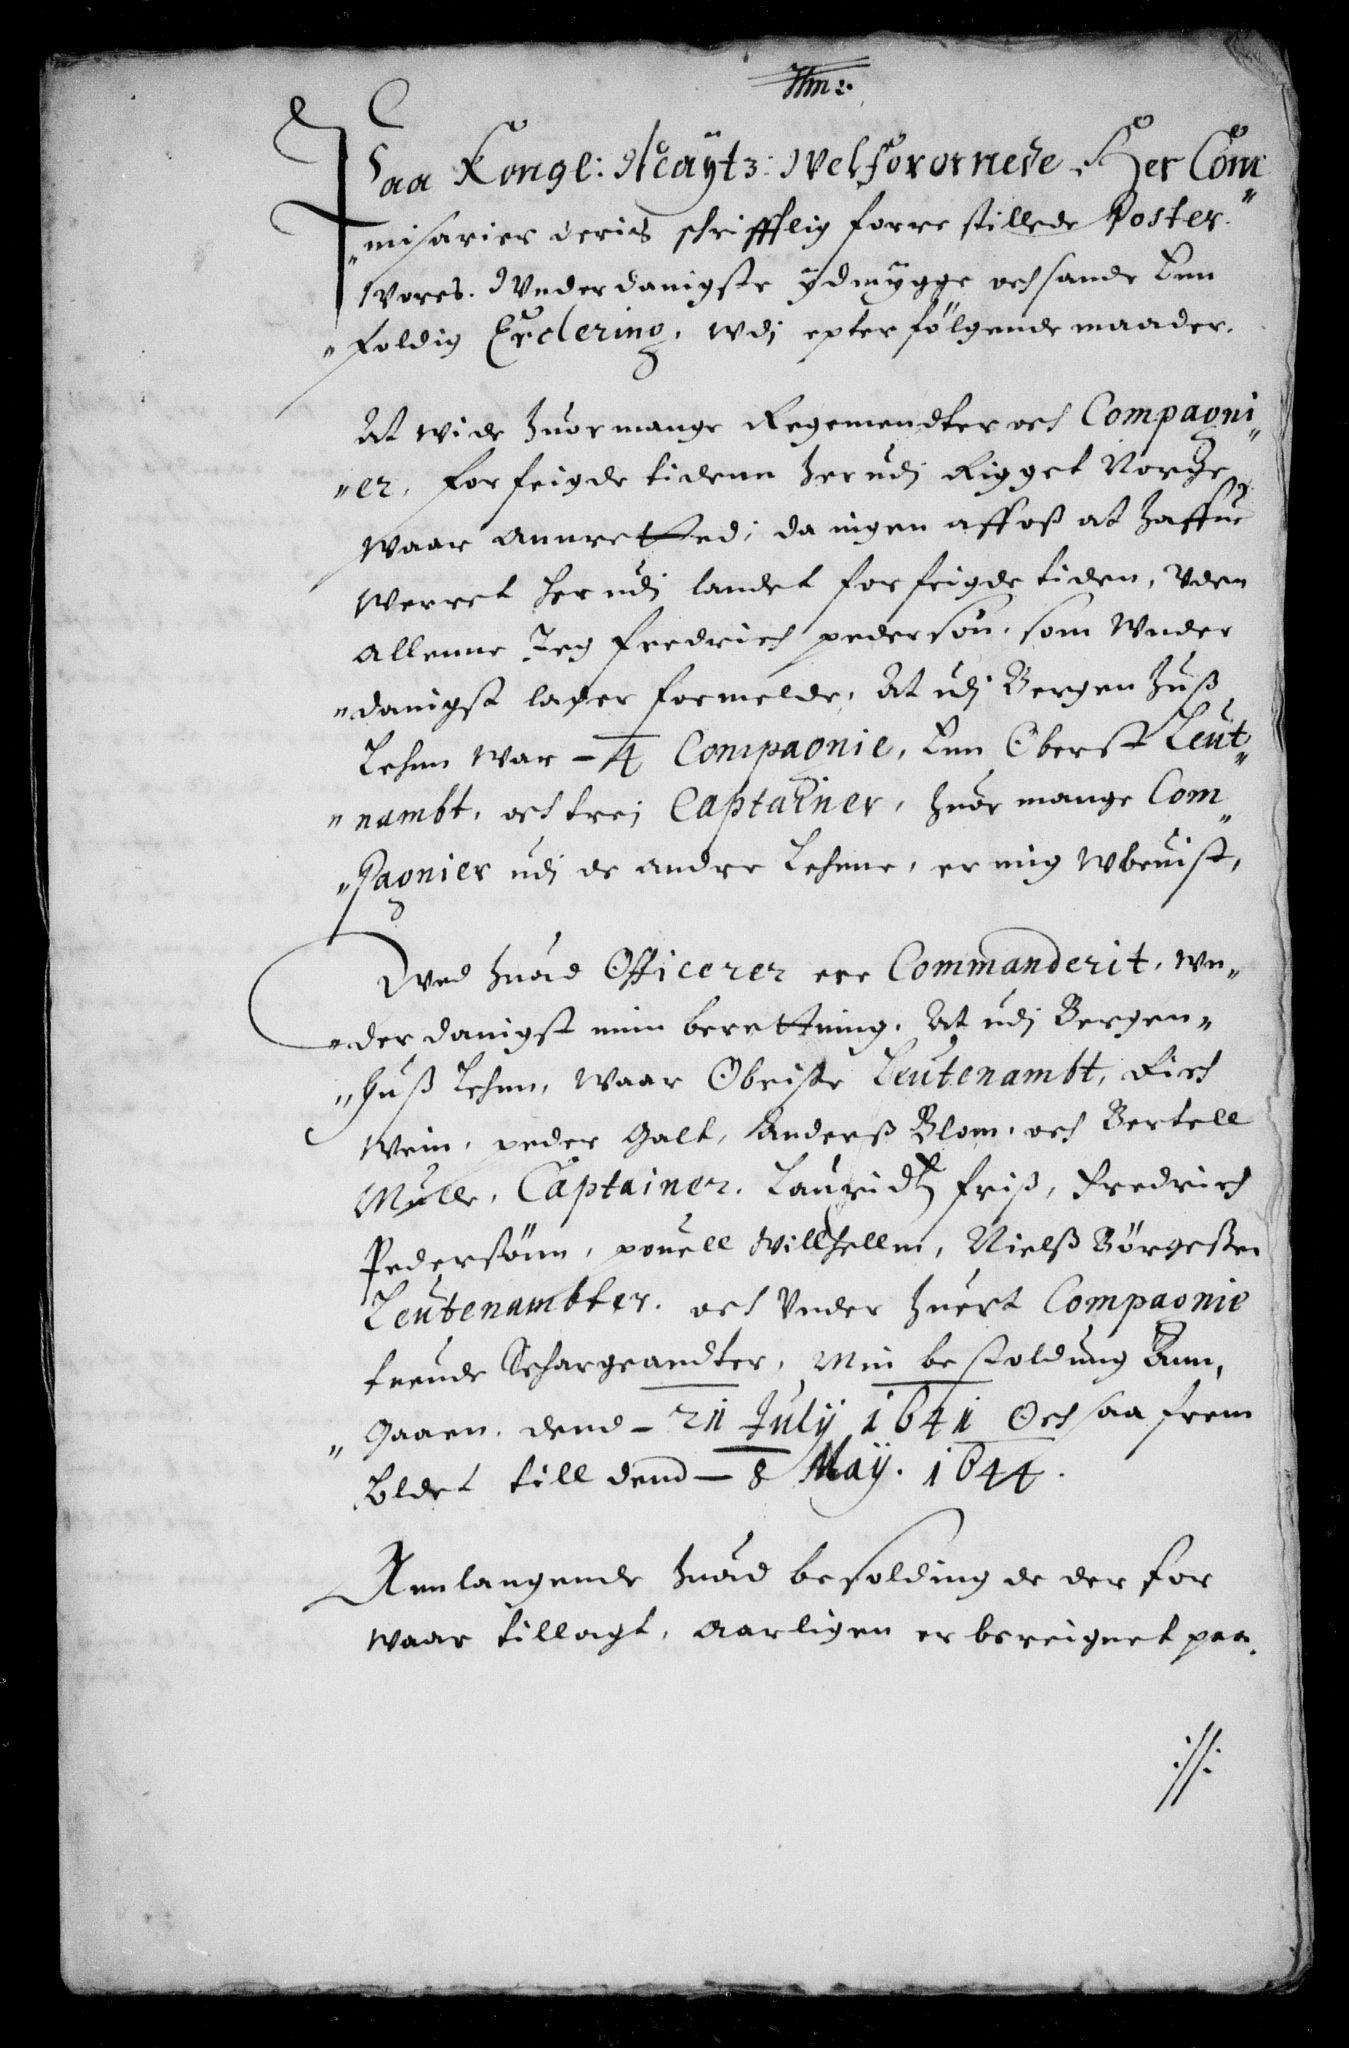 Ihm:
Paa Kongl: Maÿtz: Welforornede Her Com„
„misarier deris schrifftlig forre stillede Poster.
Wores. Wnderdanigste ÿdmÿgge och sande Een
„foldig Erclering, wdj epterfølgende maader.
At wide huor mange Regemendter och Compagni„
„er, for feigde tidenn her udj Rigget Norge
waar annretted, da ingen aff oß at haffue
werret her udj landet for feigde tiden, Vden
allenne Jeg fredrich pedersøn, som Wnder
„danigst lader formelde, At udj Bergen huß
Lehnn war – 4 Compagnie, Een Oberst Leut„
„nambt, och trej Captainer, huor mange Com„
„pagnier udj de andre Lehnne, er mig wbeuist,
Dend huad Officerer ere Commanderit, wn„
„derdanigst min berettning. At udj Bergen„
„huß Lehnn, waar Obriste Leutenambt, Rich
Wein, peder Galt, Anderß Blom, och Bertell
Mulle, Captainer. Lauridtz friß, Fredrich
Pedersønn, pouell Willhellm, Nielß Børgeßen
Leutenambter. och Vnder huert Compagnie
tuende Schargeandter, Min bestoldung Ann„
„gaaen, dend – 21 Julÿ 1641 Och saa frem
bldet till dend – 8 Maÿ. 1644.
Annlangende huad besolding de der for
waar tillagt, aarligen er bereignet paa.
://: